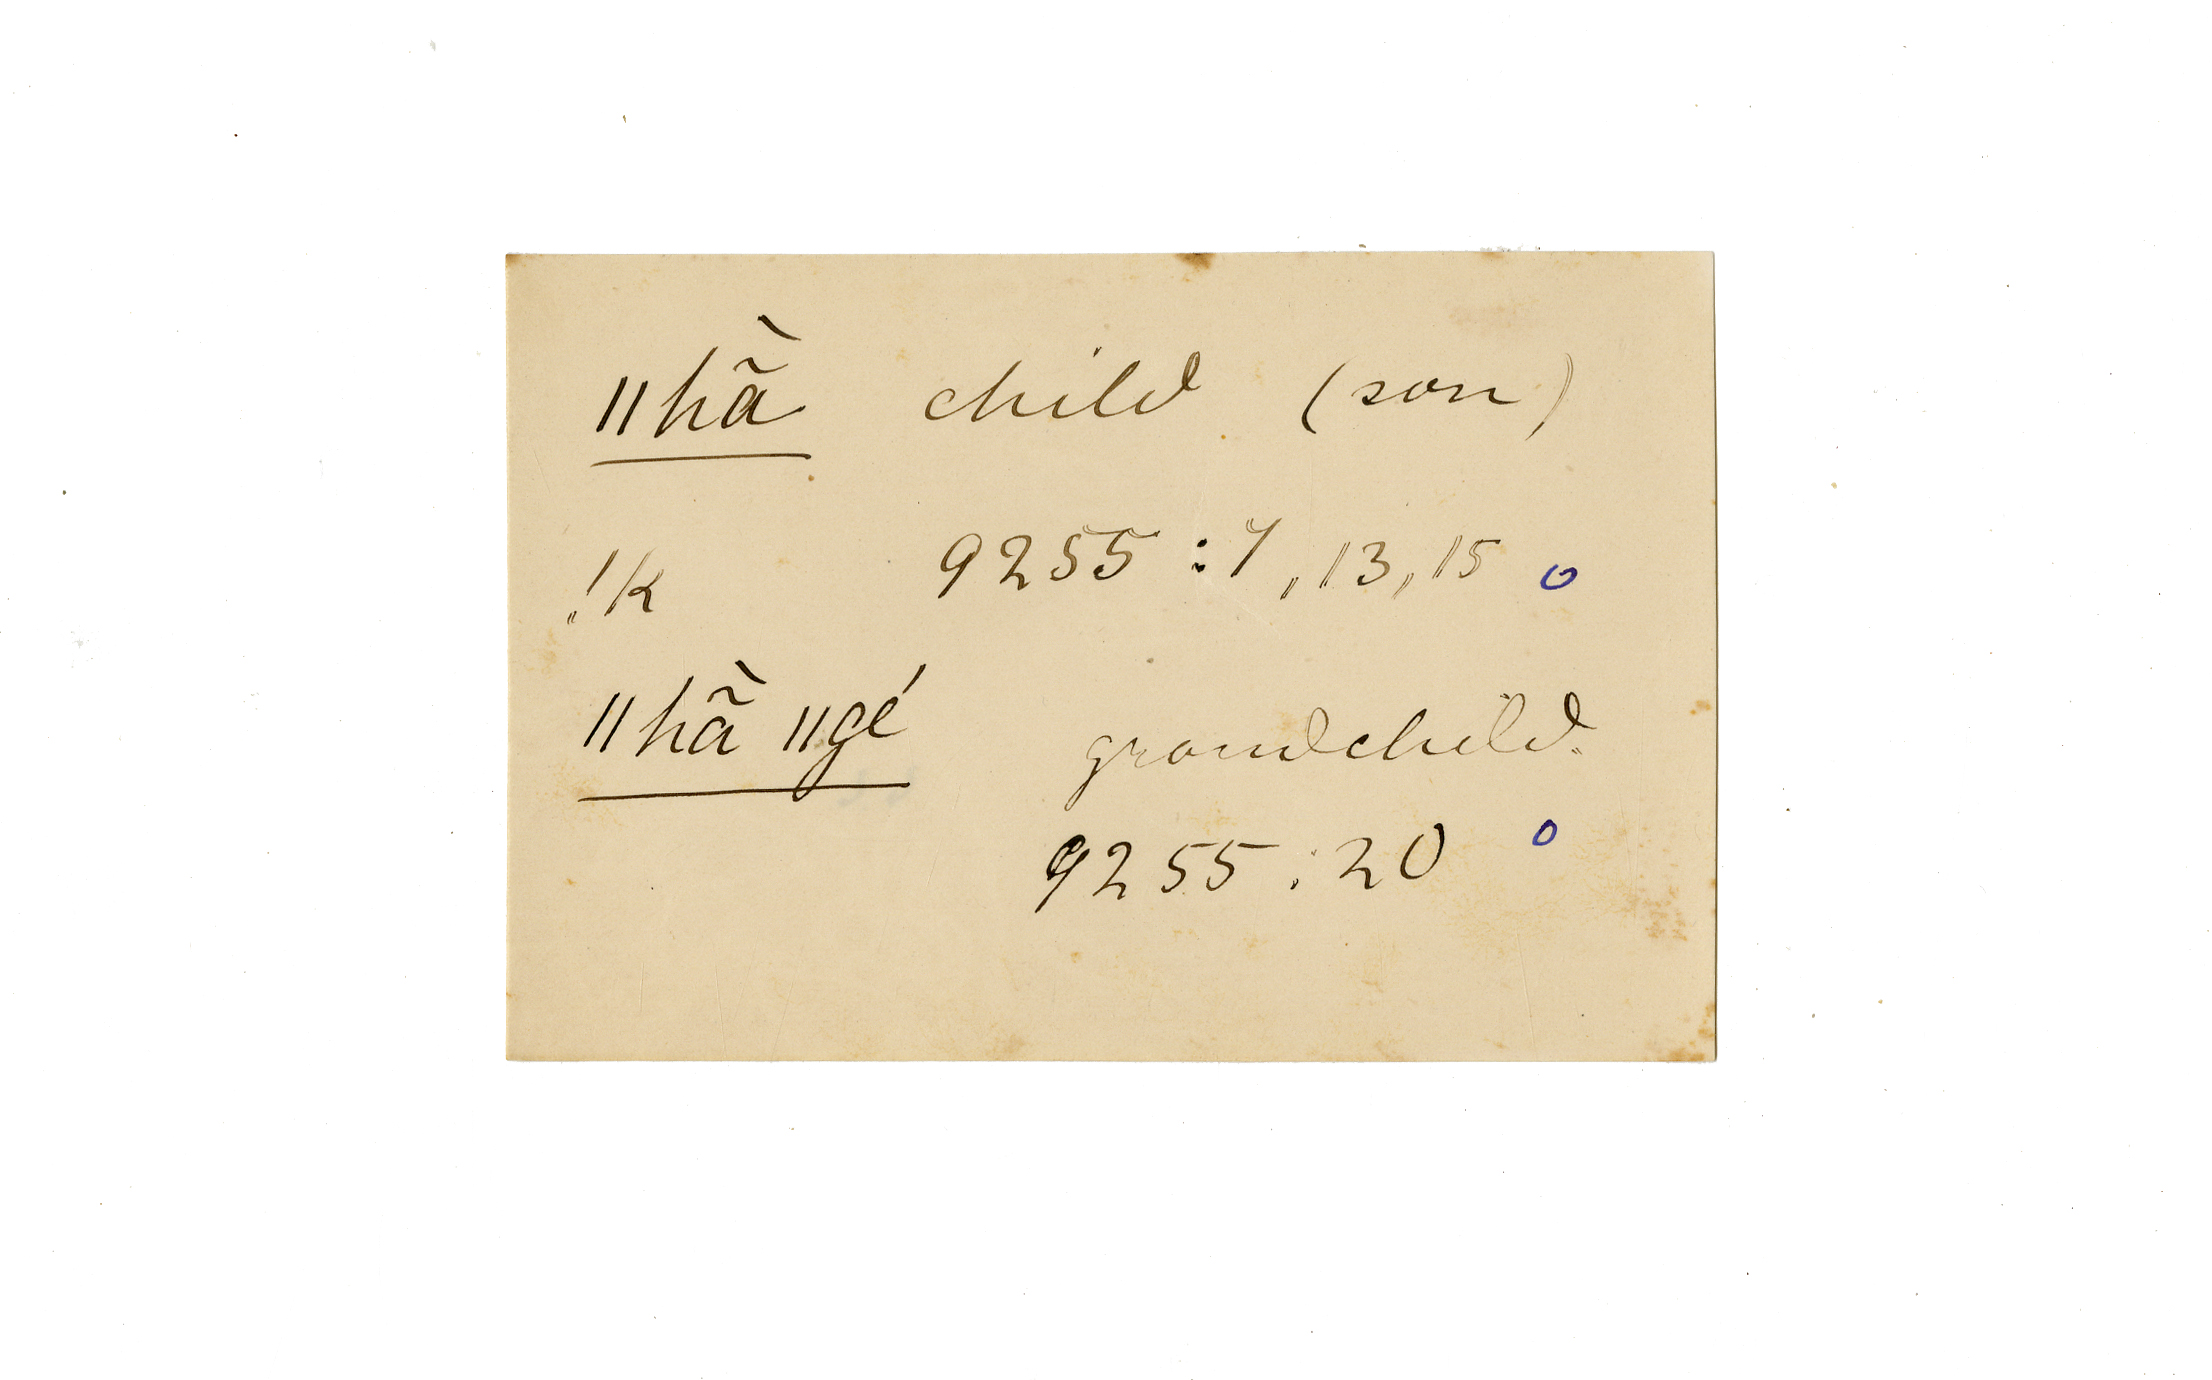 ǁhã̀ child (son)
!k 9255 : 7, 13, 15 o
ǁhã̀ ǁgé grandchild.
9255 : 20 o